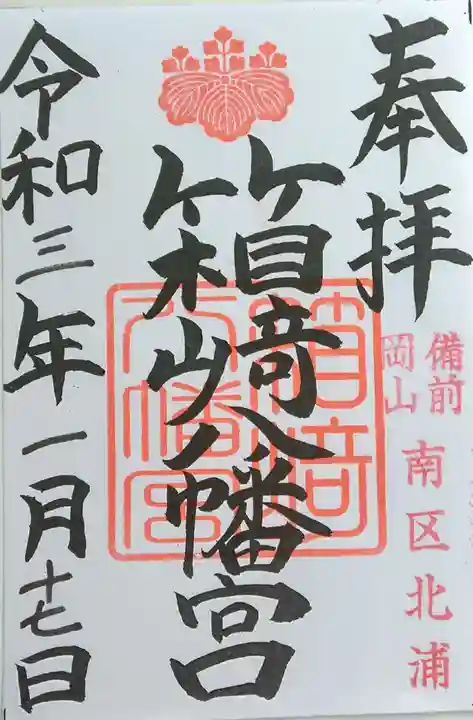 奉拝
備前
岡山
南区北浦
箱崎八幡宮
箱崎八幡宮
令和三年一月十七日